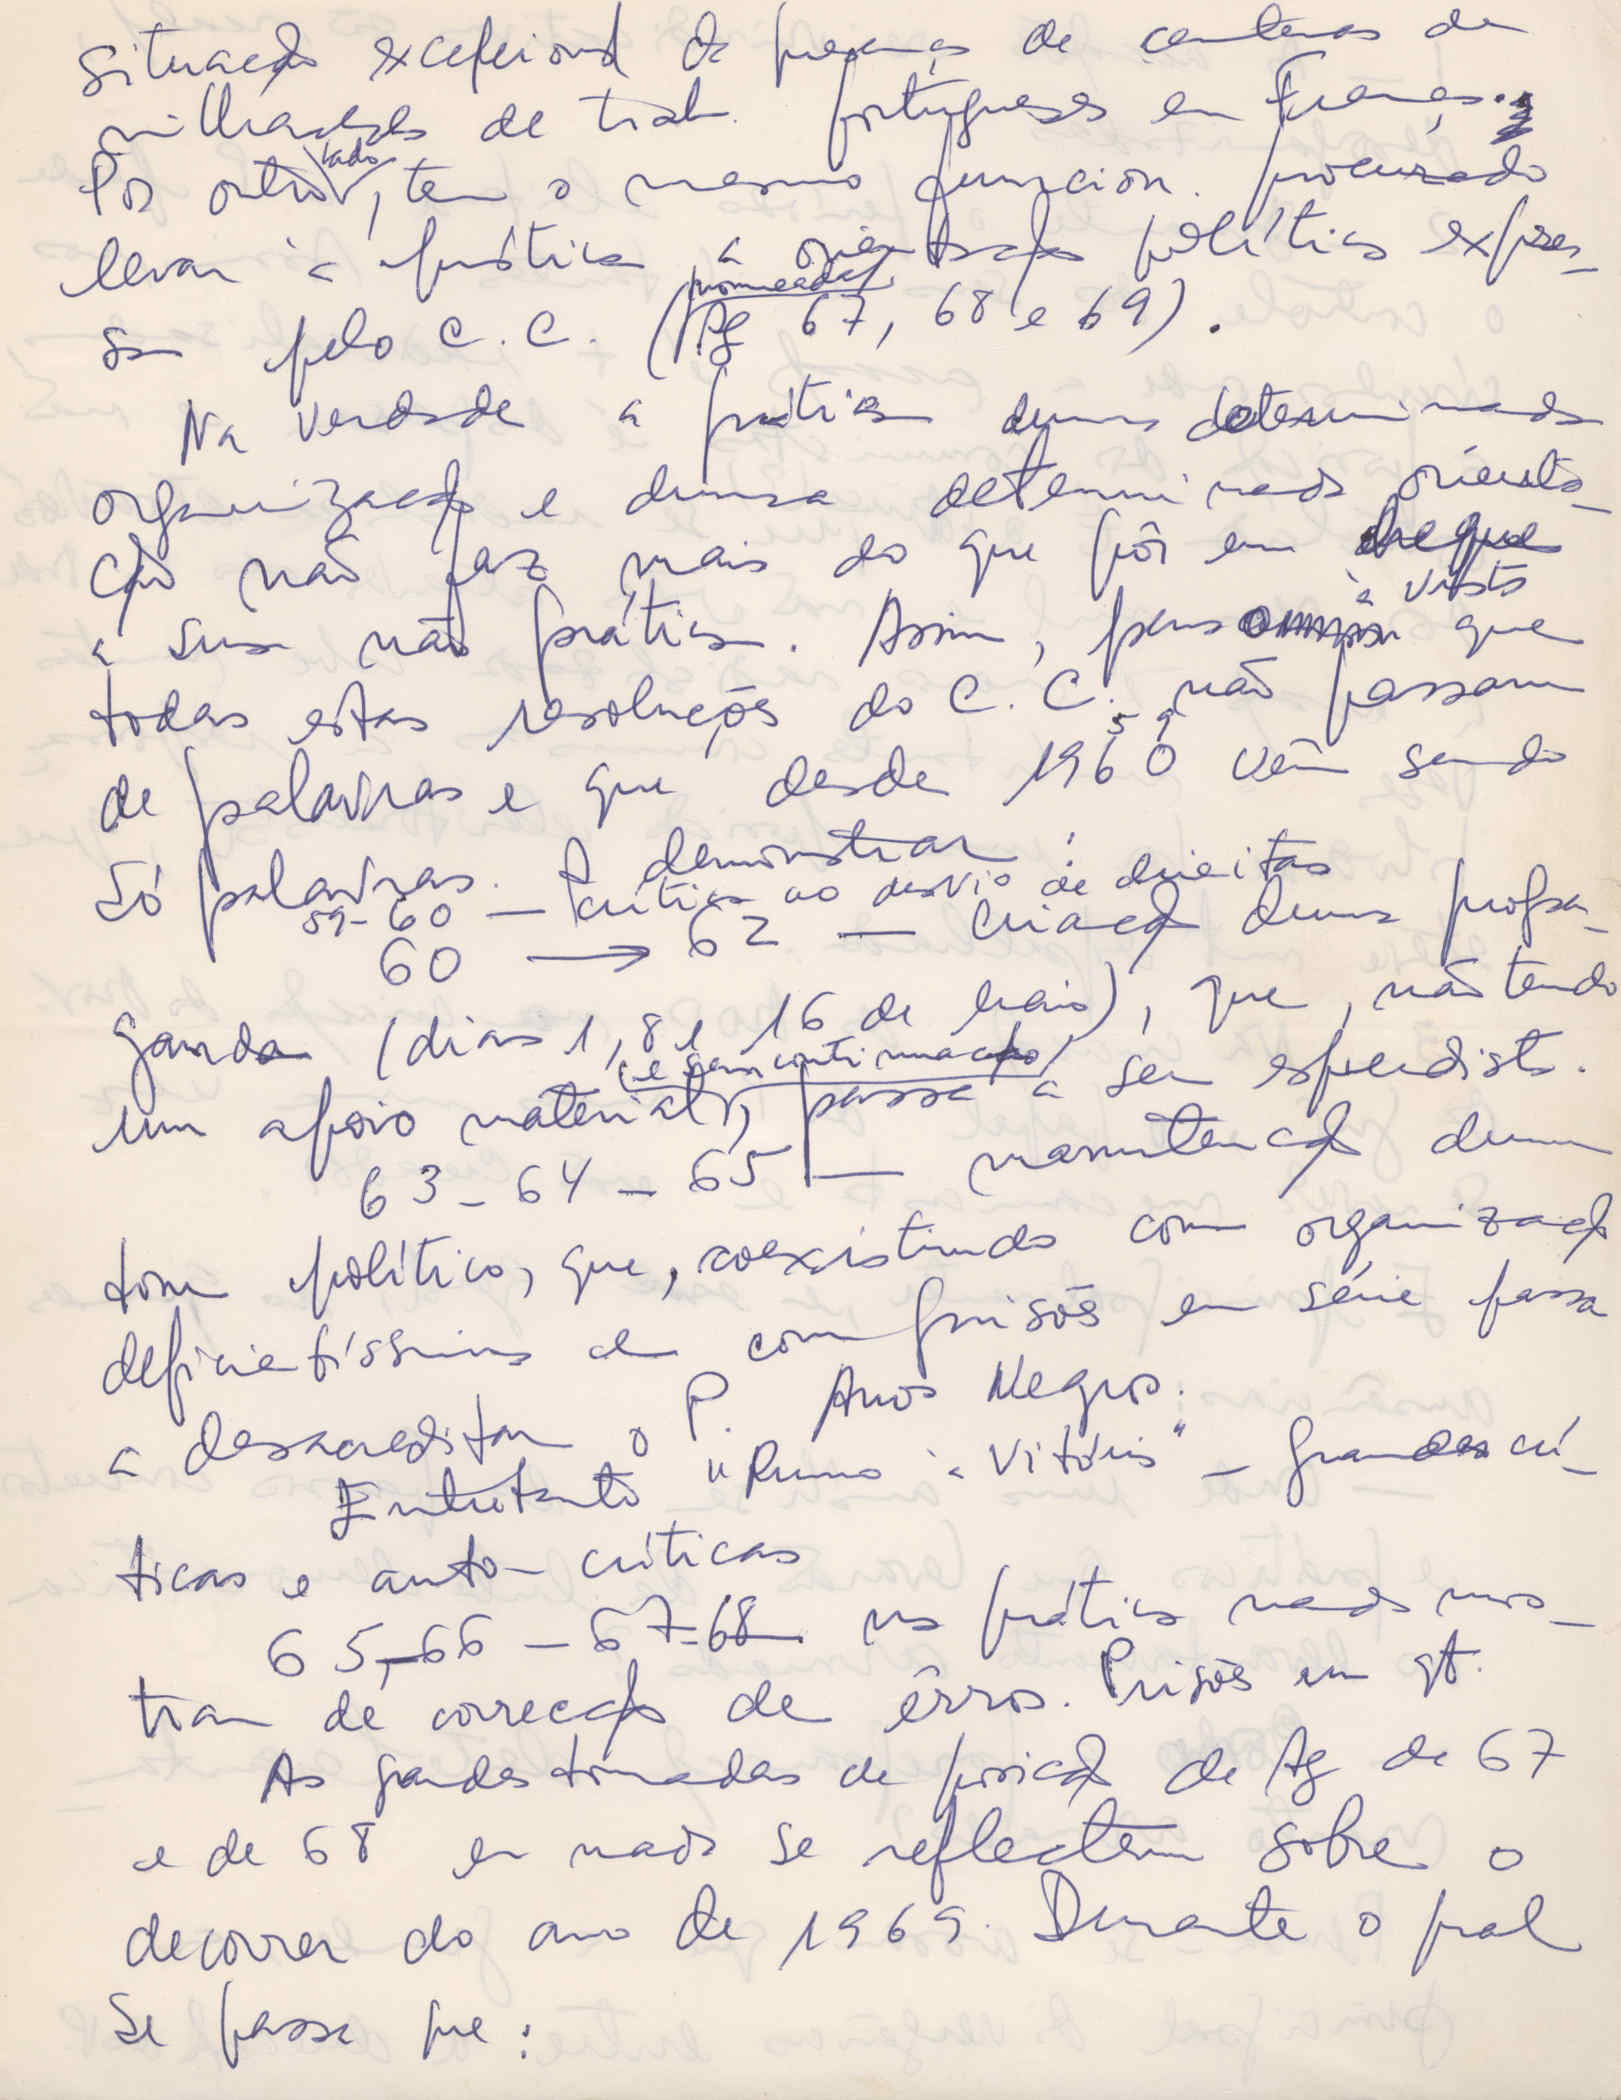 situação excepcional da presença de centenas de
milhares de trab. portugueses em França.
Por outro lado, tem o mesmo funcion. procurado
levar à prática a orientação política expres-
sa pelo C. C. (nomeadas/ 67, 68 e 69).
Na verdade a prática duma determinada
organização e dunsa determinada orienta-
ção não faz mais do que pôr em cheque
a sua não prática. Assim, à vista que
todas estas resoluções do C. C. não passam
de palavras e que desde 1960 59 vêm sendo
só palavras. A demonstrar:
59-60 — Crítica ao desvio de direitas
60 → 62 — Criação duma propa-
ganda (dias 1, 8 e 16 de Maio), que, não tendo
um apoio material (e sem continuação), passa a ser
63 - 64 - 65 — manutenção dum
tom político, que, coexistindo com organização
deficientíssima e com prisões em série passa
a desacreditar o P. Anos Negros.
Entretanto "Rumo à Vitória" - Grandes crí-
ticas e auto-críticas
65, 66 - 67-68 na prática nada mos-
tram de correcção de êrros. Prisões em qt.
As grandes tomadas de posição de Ag de 67
e de 68 em nada se reflectem sobre o
decorrer do ano de 1969. Durante o qual
Se passa que: